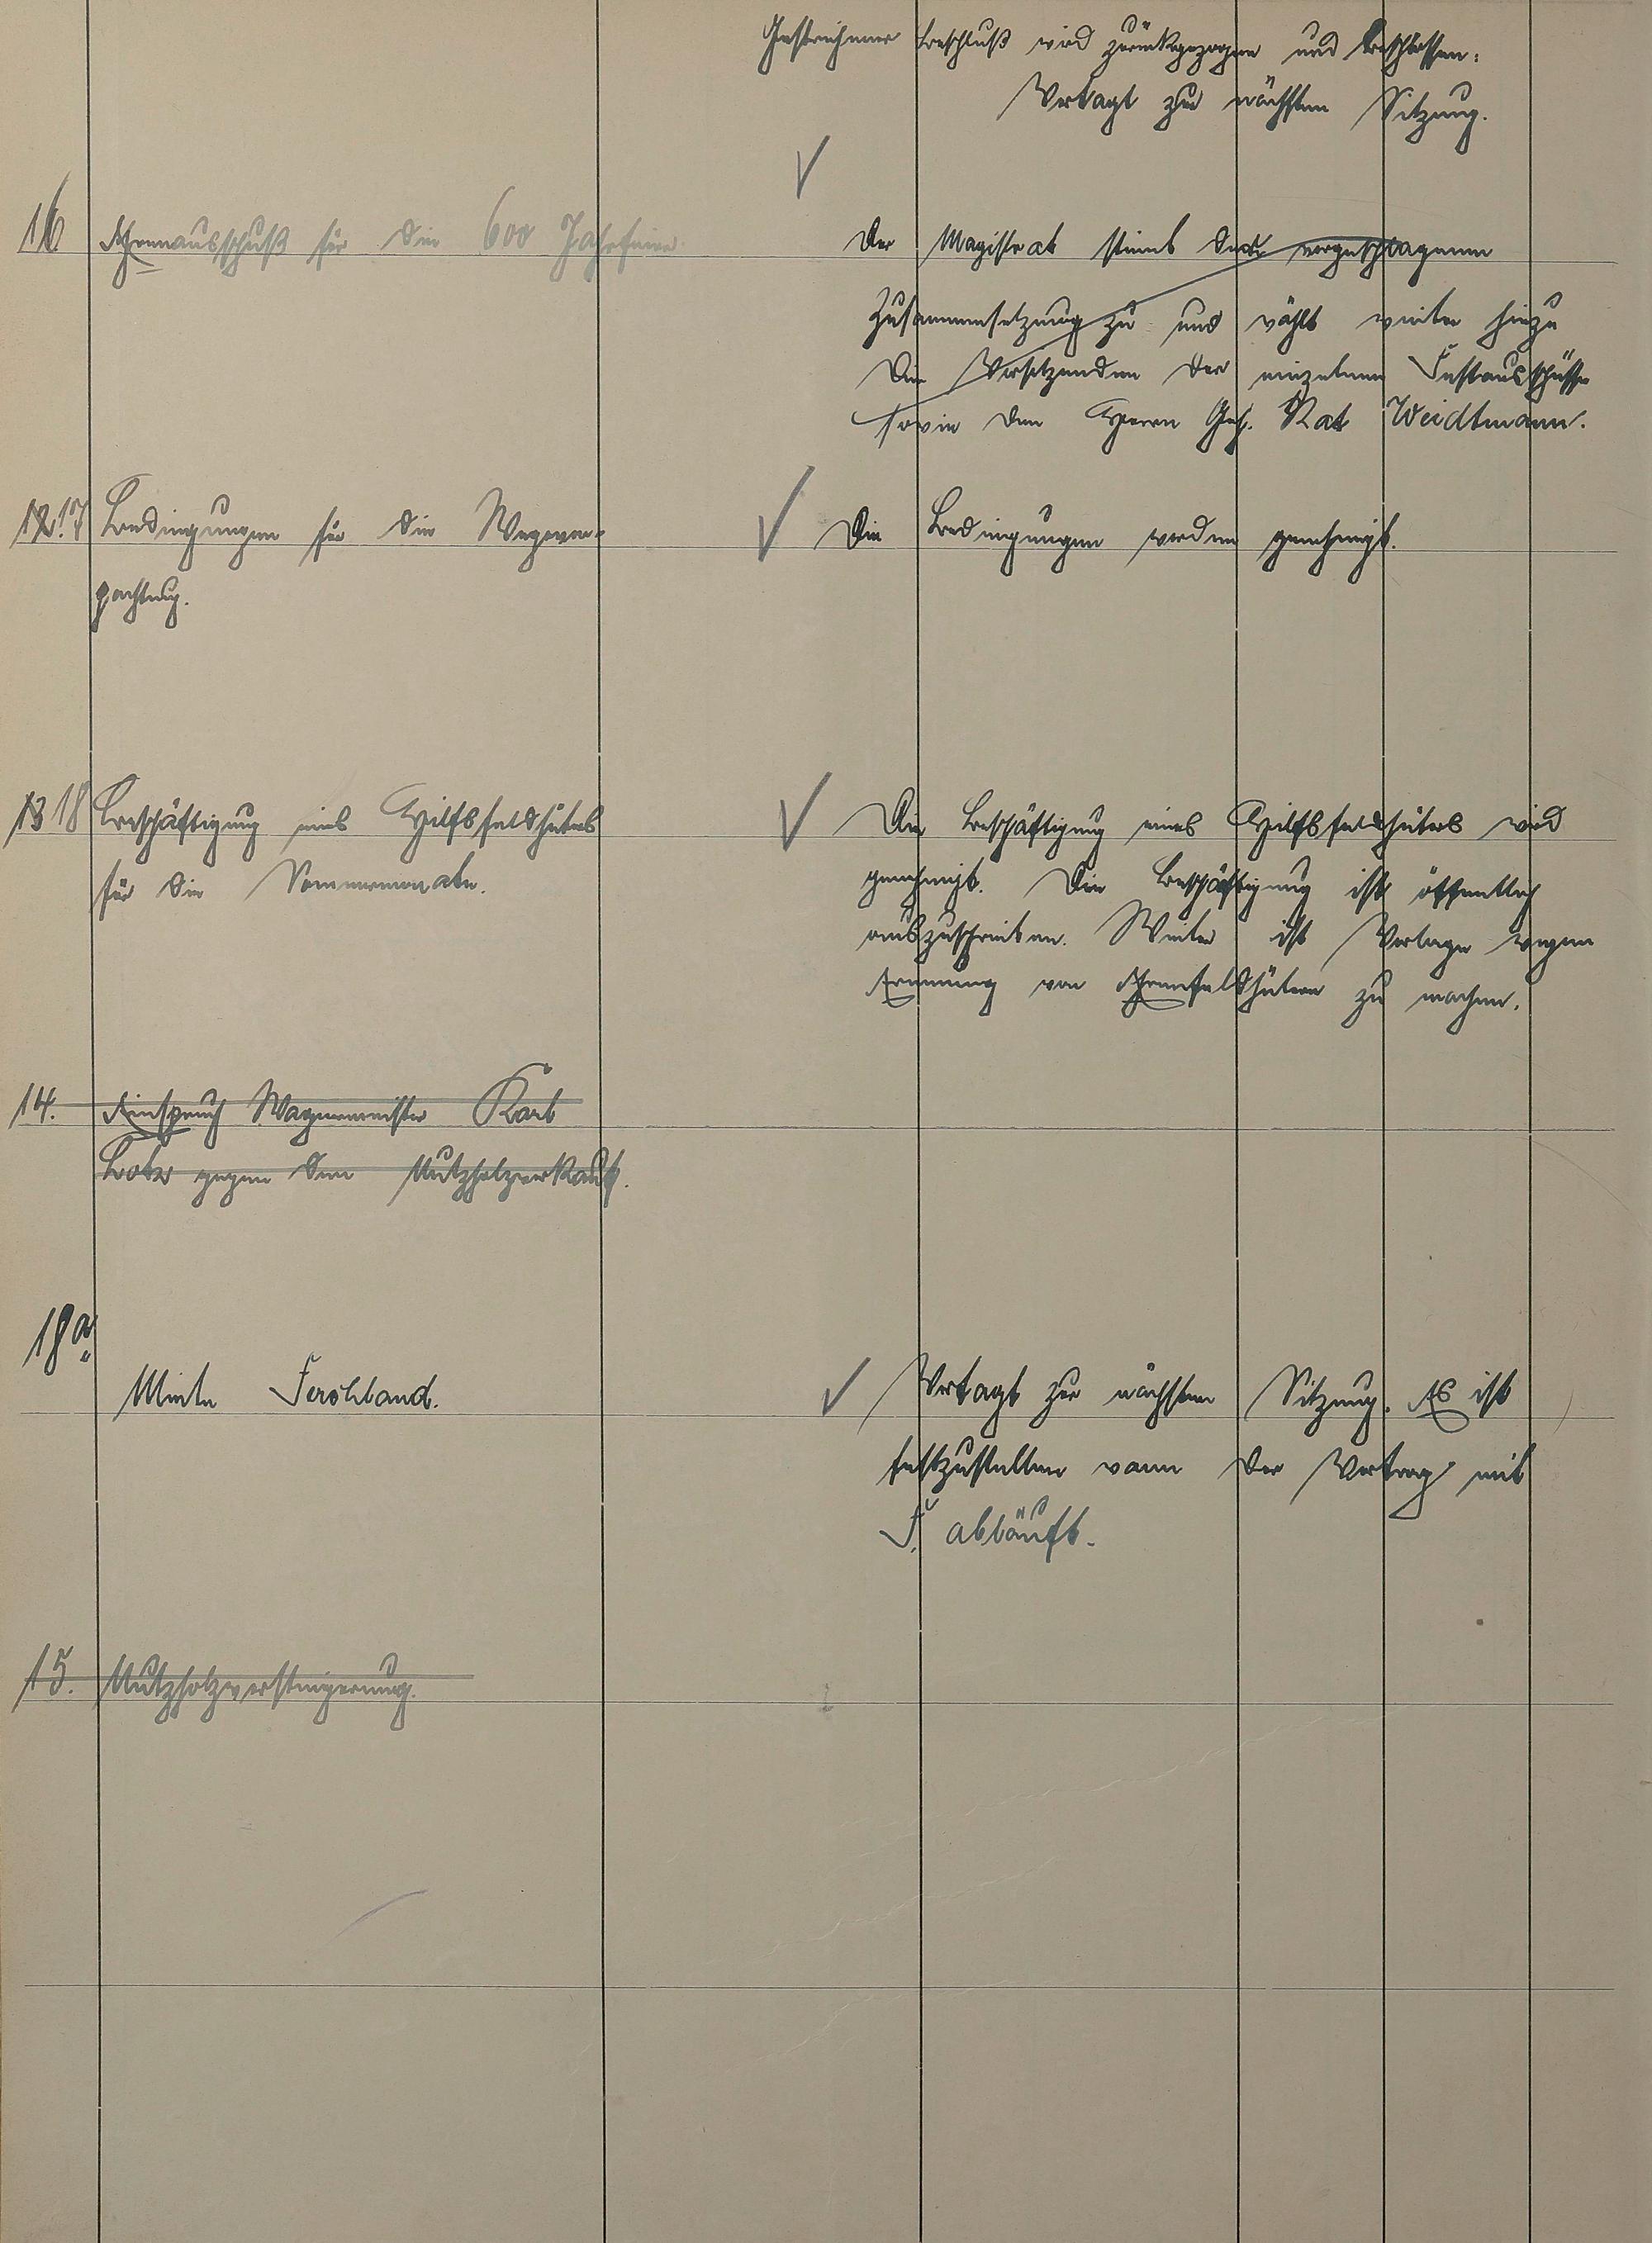 Gestrichener Beschluß wird zurückgezogen und beschlossen:
Vertagt zur nächsten Sitzung.
16 Ehrenausschuß für die 600 Jahrfeier.
Der Magistrat stimmt der vorgeschlagenen
Zusammensetzung zu und wählt weiter hinzu
die Vorsitzenden der einzelnen Festausschüsse
sowie den Herrn Geh. Rat Weidtmann.
12. 17 Bedingungen für die Wegever-
pachtung.
Die Bedingungen werden genehmigt.
13 18 Beschäftigung eines Hilfsfeldhüters
für die Sommermonate.
Die Beschäftigung eines Hilfsfeldhüters wird
genehmigt. Die Beschäftigung ist öffentlich
auszuschreiben. Weiter ist Vorlage wegen
Ernennung von Ehrenfeldhütern zu machen.
14. Einspruch Wagnermeister Karl
Lotz gegen den Nutzholzverkauf.
18a Miete Ferchland.
Vertagt zur nächsten Sitzung. Es ist
festzustellen wann der Vertrag mit
F. abläuft.
15. Nutzholzversteigerung.